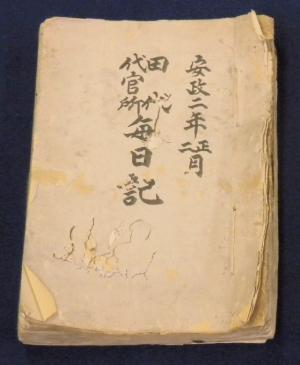 安政二年正二月
田代代官所毎日記